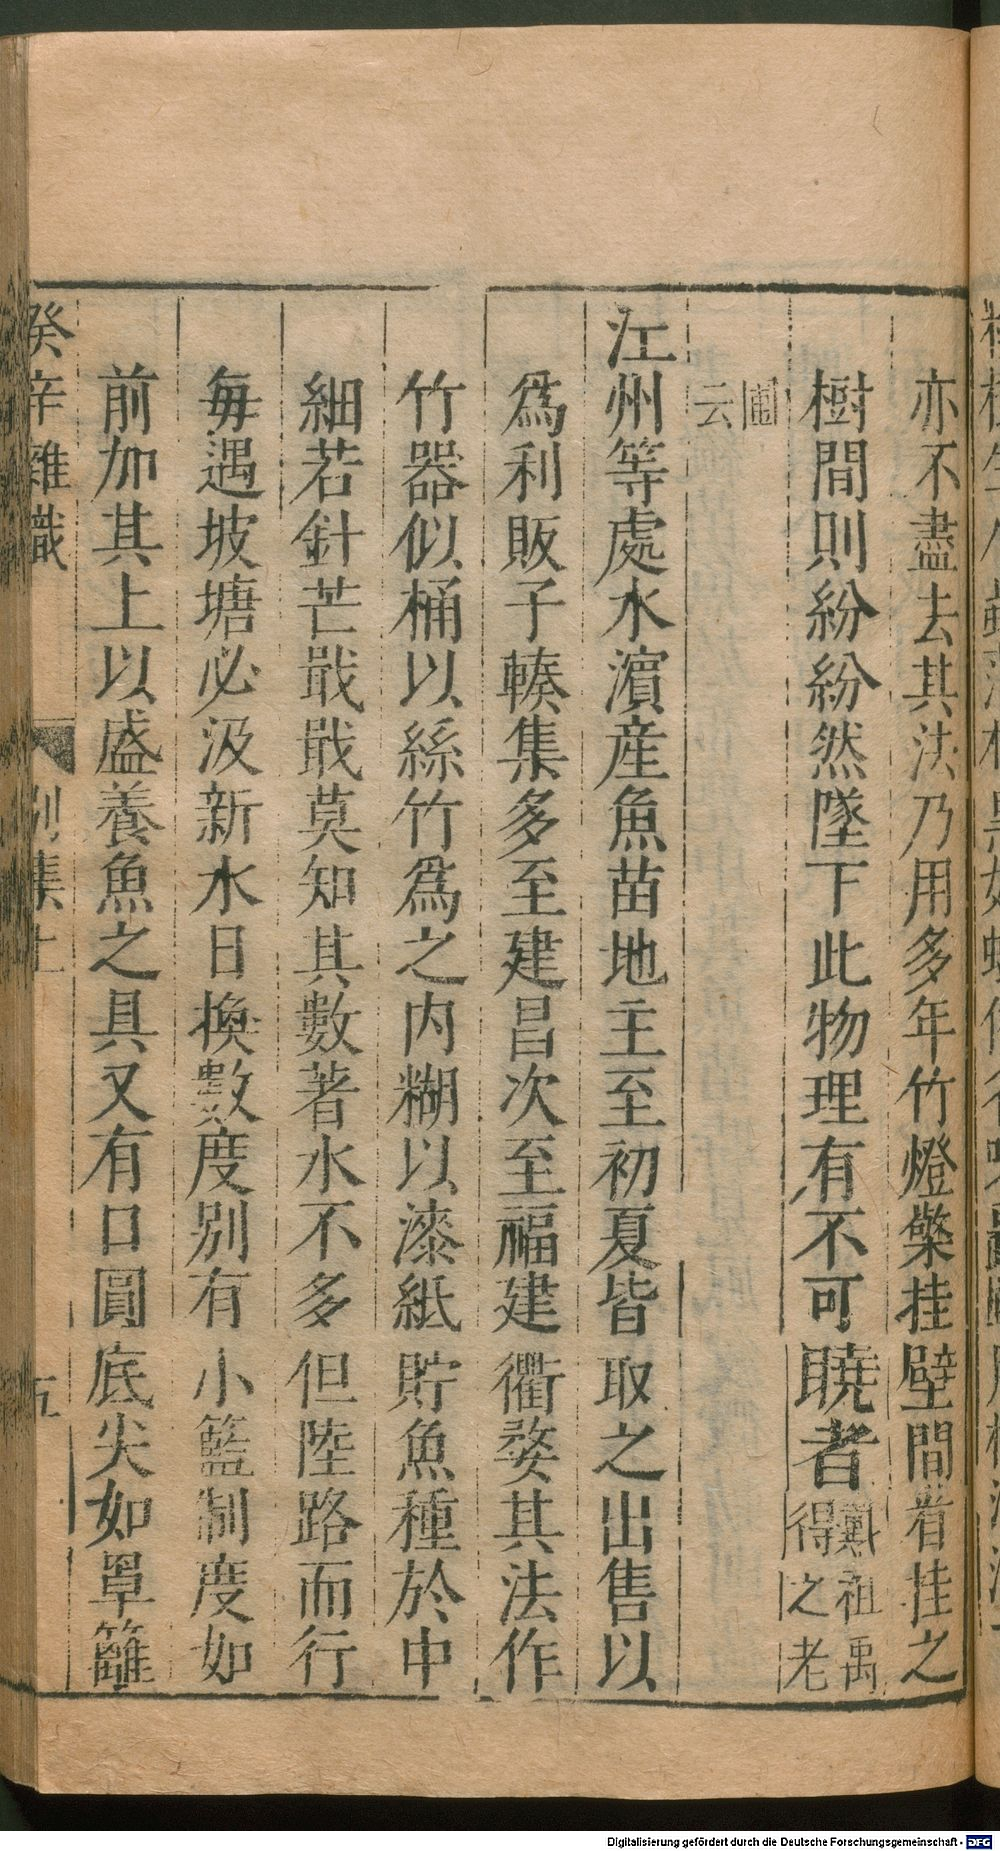 亦不盡去其法乃用多年竹燈檠挂壁間者挂之
樹間則紛紛然墜下此物理有不可曉者戴祖禹得之老
圃云
江州等處水濱産魚苗地主至初夏皆取之出售以
爲利販子輳集多至建昌次至福建衢婺其法作
竹器似桶以絲竹爲之内糊以漆紙貯魚種於中
細若針芒戢戢莫知其數著水不多但陸路而行
毎遇坡塘必汲新水日換數度别有小籃制度如
前加其上以盛養魚之具又有口圓底尖如罩籬
癸辛雜識 别集上 五
Digitalisierung gefördert durch die Deutsche Forschungsgemeinschaft - DFG